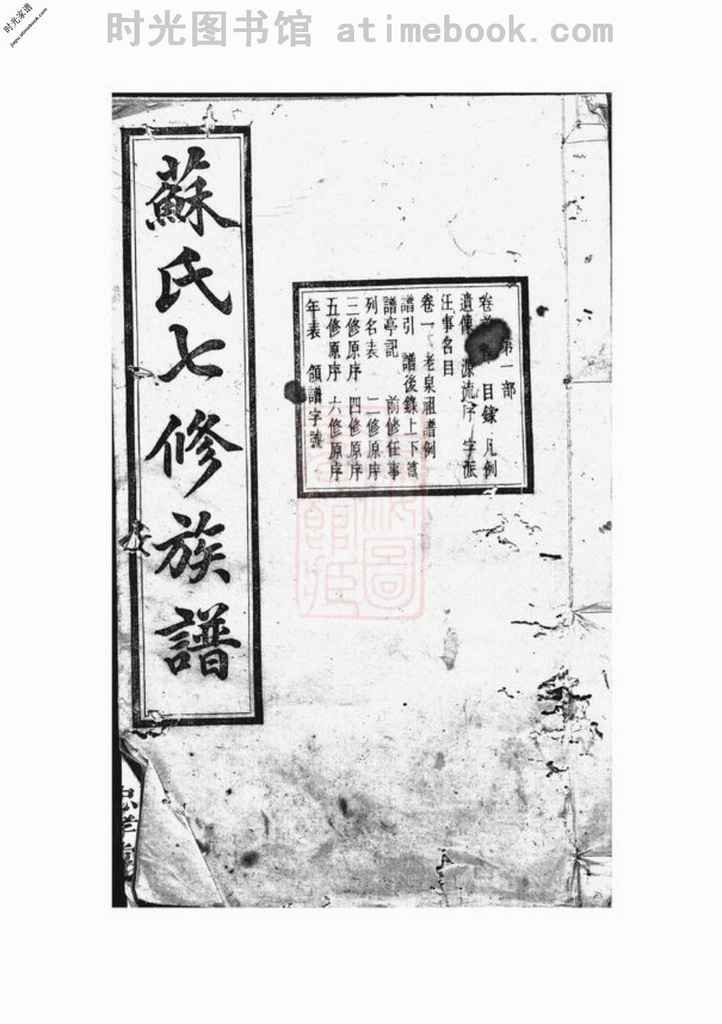 时光家谱
jiapu.atimebook.com
时光图书馆 atimebook.com
蘇氏七修族譜
第一部
卷 目錄 凡例
遺像 源流序 字派
任事名目
卷一 老泉祖譜例
譜引 譜後錄上下篇
譜亭記 前修任事
列名表 二修原序
三修原序 四修原序
五修原序 六修原序
年表 領譜字號